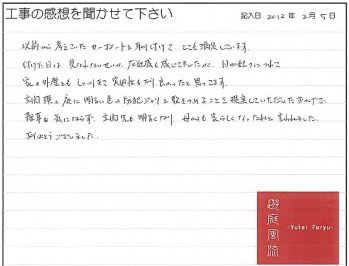 工事の感想を聞かせて下さい
記入日 2012年 2月 5日
以前から考えていたカーポートを取り付けて、とても満足しています。
付けた日は、見なれないせいか、圧迫感も感じてましたが、日が経つにつれて
家の外壁とも しっくりきて 良かったと思ってます。
玄関横の庭に明るい色の防犯じゃりを敷きつめることを提案していただいたおかげで、
雑草も気にならず、玄関先も明るくなり、
ありがとうございました。
遊庭風流
-Yutei Furyu-